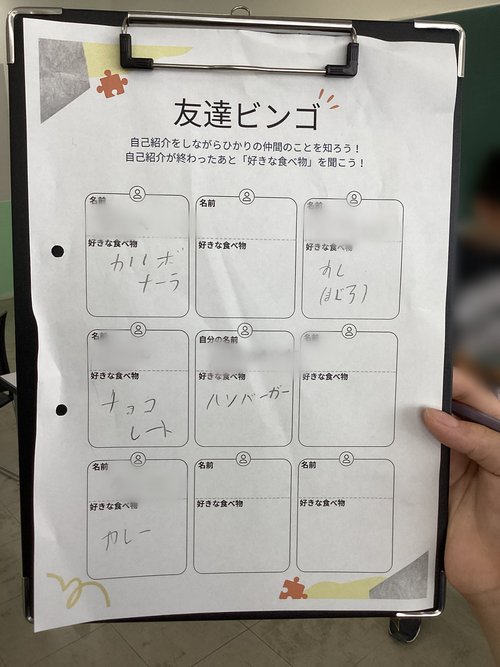 友達ビンゴ
自己紹介をしながらひかりの仲間のことを知ろう！
自己紹介が終わったあと「好きな食べ物」を聞こう！
名前
好きな食べ物
カルボ
ナーラ
名前
好きな食べ物
名前
好きな食べ物
名前
好きな食べ物
チョコ
レート
自分の名前
好きな食べ物
ハンバーガー
名前
好きな食べ物
名前
好きな食べ物
カレー
名前
好きな食べ物
名前
好きな食べ物